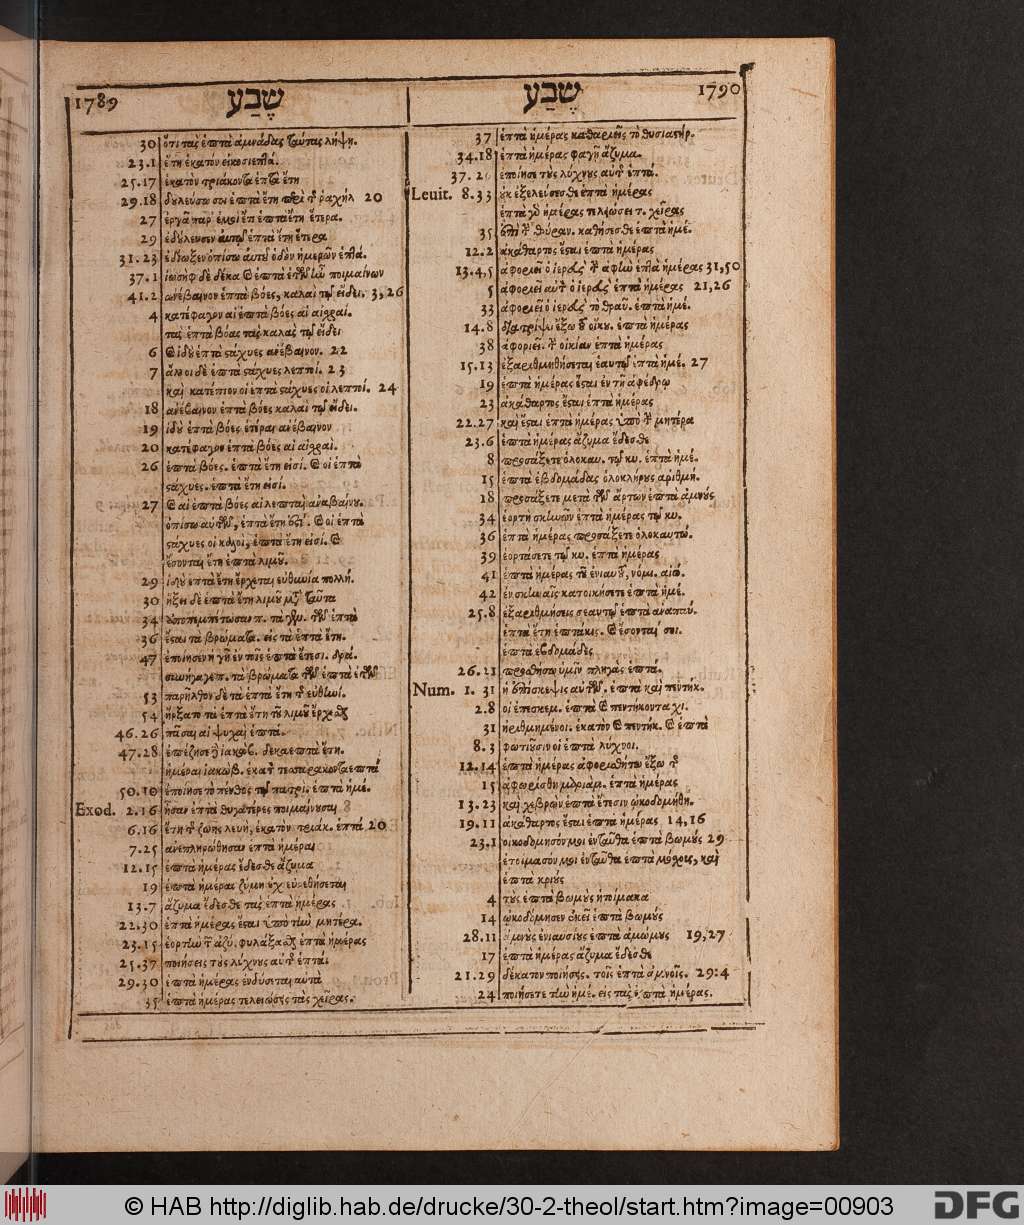 1789 שֶׁבַע
30 ὅτι τὰς ἑπτὰ ἀμνάδας ταύτας λήψῃ.
23.1 ἔτη ἑκατὸν εἰκοσιεπτά.
25.17 ἑκατὸν τριάκοντα ἑπτὰ ἔτη
29.18 δουλεύσω σοι ἑπτὰ ἔτη περὶ τῆς ῥαχήλ 20
27 ἐργᾷ παρ' ἐμοὶ ἔτι ἑπτὰ ἔτη ἕτερα.
29 ἐδούλευσεν αὐτῷ ἑπτὰ ἔτη ἕτερα
31.23 ἐδίωξεν ὀπίσω αὐτοῦ ὁδὸν ἡμερῶν ἑπτά.
37.1 ἰωσὴφ δὲ δέκα καὶ ἑπτὰ ἐτῶν ἦν ποιμαίνων
41.2 ἀνέβαινον ἑπτὰ βόες, καλαὶ τῷ εἴδει. 3,26
4 κατέφαγον αἱ ἑπτὰ βόες αἱ αἰσχραί.
τὰς ἑπτὰ βόας τὰς καλὰς τῷ εἴδει
6 καὶ ἰδοὺ ἑπτὰ στάχυες ἀνέβαινον. 22
7 ἄλλοι δὲ ἑπτὰ στάχυες λεπτοί. 23
καὶ κατέπιον οἱ ἑπτὰ στάχυες οἱ λεπτοί. 24
18 ἀνέβαινον ἑπτὰ βόες καλαὶ τῷ εἴδει.
19 ἰδοὺ ἑπτὰ βόες ἕτεραι ἀνέβαινον
20 κατέφαγον ἑπτὰ βόες αἱ αἰσχραὶ.
26 ἑπτὰ βόες. ἑπτὰ ἔτη εἰσί. καὶ οἱ ἑπτὰ
στάχυες. ἑπτὰ ἔτη εἰσί.
27 καὶ αἱ ἑπτὰ βόες αἱ λεπταὶ ἀναβαίνου.
ὀπίσω αὐτῶν, ἑπτὰ ἔτη ἐστί. καὶ οἱ ἑπτὰ
στάχυες οἱ καλοὶ, ἑπτὰ ἔτη εἰσί. καὶ
ἔσονται ἔτη ἑπτὰ λιμοῦ.
29 ἰδοὺ ἑπτὰ ἔτη ἔρχεται εὐθηνία πολλή.
30 ἥξει δὲ ἑπτὰ ἔτη λιμοῦ μετὰ ταῦτα
34
36 ἔσται τὰ βρώματα. εἰς τὰ ἑπτὰ ἔτη.
47 ἐποίησεν ἡ γῆ ἐν τοῖς ἑπτὰ ἔτεσι. δρά.
συνήγαγε π. τὰ βρώματα τῶν ἑπτὰ ἐτῶν
53 παρῆλθον δὲ τὰ ἑπτὰ ἔτη τῆς εὐθηνί.
54 ἤρξατο τὰ ἑπτὰ ἔτη τοῦ λιμοῦ ἔρχεσθαι
46.26 πᾶσαι αἱ ψυχαὶ ἑπτά.
47.28 ἐπέζησε δὲ ἰακώβ. δεκαεπτὰ ἔτη.
ἡμέραι ἰακώβ. ἑκατὸν τεσσαρακονταεπτά
50.10 ἐποίησε τὸ πένθος τῷ πατρί. ἑπτὰ ἡμέ.
Exod. 2.16 ἦσαν ἑπτὰ θυγατέρες ποιμαίνουσαι
6.16 ἔτη τῆς ζωῆς λευὴ, ἑκατὸν τριάκ. ἑπτά 20
7.25 ἀνεπληρώθησαν ἑπτὰ ἡμέραι
12.15 ἑπτὰ ἡμέρας ἔδεσθε ἄζυμα
19 ἑπτὰ ἡμέρας ζύμη οὐχ εὑρεθήσεται
13.7 ἄζυμα ἔδεσθε τὰς ἑπτὰ ἡμέρας
22.30 ἑπτὰ ἡμέρας ἔσται ὑπὸ τὴν μητέρα.
23.15 ἑορτὴν τῶν ἀζύ. φυλάξασθε ἑπτὰ ἡμέρας
25.37 ποιήσεις τοὺς λύχνους αὐτῆς ἑπτά.
29.30 ἑπτὰ ἡμέρας ἐνδύσεται αὐτὰ
35 ἑπτὰ ἡμέρας τελειώσεις τὰς χεῖρας.
שֶׁבַע 1790
37 ἑπτὰ ἡμέρας καθαριεῖς τὸ θυσιαστήρ.
34.18 ἑπτὰ ἡμέρας φαγῇ ἄζυμα.
37.26 ἐποίησε τοὺς λύχνους αὐτῆς ἑπτά.
Leuit. 8.33 οὐκ ἐξελεύσεσθε ἑπτὰ ἡμέρας
ἑπτὰ γὰρ ἡμέρας τελειώσει τ. χεῖρας
35 ἐπὶ τὴν θύραν. καθήσεσθε ἑπτὰ ἡμέ.
12.2 ἀκάθαρτος ἔσται ἑπτὰ ἡμέρας
13.4,5 ἀφοριεῖ ὁ ἱερεὺς τὴν ἁφὴν ἑπτὰ ἡμέρας 31,50
5 ἀφοριεῖ αὐτὸν ὁ ἱερεὺς ἑπτὰ ἡμέρας 21,26
33 ἀφοριεῖ ὁ ἱερεὺς τὸ θραῦ. ἑπτὰ ἡμέ.
14.8 διατρίψει ἔξω τοῦ οἴκου. ἑπτὰ ἡμέρας
38 ἀφοριεῖ. τὴν οἰκίαν ἑπτὰ ἡμέρας
15.13 ἐξαριθμηθήσεται ἑαυτῷ ἑπτὰ ἡμέ. 27
19 ἑπτὰ ἡμέρας ἔσται ἐν τῇ ἀφέδρῳ
23 ἀκάθαρτος ἔσται ἑπτὰ ἡμέρας
22.27 καὶ ἔσται ἑπτὰ ἡμέρας ὑπὸ τὴν μητέρα
23.6 ἑπτὰ ἡμέρας ἄζυμα ἔδεσθε
8 προσάξετε ὁλοκαυ. τῷ κυ. ἑπτὰ ἡμέ.
15 ἑπτὰ ἑβδομάδας ὁλοκλήρους ἀριθμή.
18 προσάξετε μετὰ τῶν ἄρτων ἑπτὰ ἀμνούς
34 ἑορτὴ σκηνῶν ἑπτὰ ἡμέρας τῷ κυ.
36 ἑπτὰ ἡμέρας προσάξετε ὁλοκαυτώ.
39 ἑορτάσετε τῷ κυ. ἑπτὰ ἡμέρας
41 ἑπτὰ ἡμέρας τοῦ ἐνιαυτοῦ, νόμι. αἰώ.
42 ἐν σκηναῖς κατοικήσετε ἑπτὰ ἡμέ.
25.8 ἐξαριθμήσεις σεαυτῷ ἑπτὰ ἀναπαύ.
ἑπτὰ ἔτη ἑπτάκις. καὶ ἔσονταί σοι.
ἑπτὰ ἑβδομάδες
26.21 προσθήσω ὑμῖν πληγὰς ἑπτά.
Num. 1.31 ἡ ἐπίσκεψις αὐτῶν. ἑπτὰ καὶ πεντήκ.
2.8 οἱ ἐπεσκεμ. ἑπτὰ καὶ πεντήκοντα χι.
31 ἠριθμημένοι. ἑκατὸν καὶ πεντήκ. καὶ ἑπτὰ
8.3 φωτιοῦσιν οἱ ἑπτὰ λύχνοι.
12.14 ἑπτὰ ἡμέρας ἀφορισθήτω ἔξω τῆς
15 ἀφωρίσθη μαριάμ. ἑπτὰ ἡμέρας
13.23 καὶ χεβρὼν ἑπτὰ ἔτεσιν ᾠκοδομήθη.
19.11 ἀκάθαρτος ἔσται ἑπτὰ ἡμέρας 14,16
23.1 οἰκοδόμησόν μοι ἐνταῦθα ἑπτὰ βωμούς 29
ἑτοίμασόν μοι ἐνταῦθα ἑπτὰ μόσχους, καὶ
ἑπτὰ κριούς
4 τοὺς ἑπτὰ βωμοὺς ἡτοίμακα
14 ᾠκοδόμησεν ἐκεῖ ἑπτὰ βωμούς
28.11 ἀμνοὺς ἐνιαυσίους ἑπτὰ ἀμώμους 19,27
17 ἑπτὰ ἡμέρας ἄζυμα ἔδεσθε
21.29 δέκατον ποιήσεις. τοῖς ἑπτὰ ἀμνοῖς. 29:4
24 ποιήσετε τὴν ἡμέ. εἰς τὰς ἑπτὰ ἡμέρας.
© HAB http://diglib.hab.de/drucke/30-2-theol/start.htm?image=00903 DFG